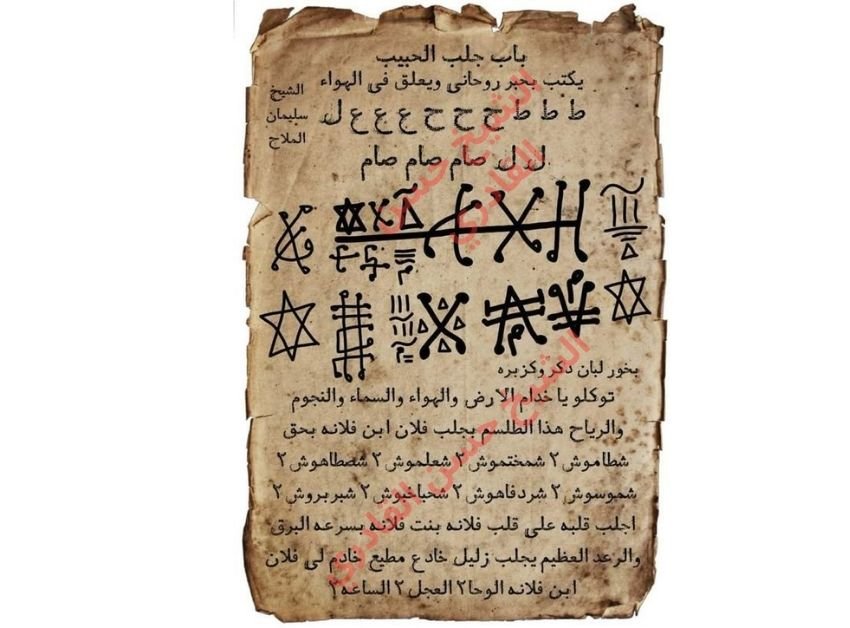 باب جلب الحبيب
يكتب بحبر روحاني ويعلق في الهواء
الشيخ
سليمان
الملاح
ط ط ط ط ح ح ح ح ع ع ع ل
ل ل صام صام صام
بخور لبان دكر وكزبره
توكلو يا خدام الارض والهواء والسماء والنجوم
والرياح هذا الطلسم بجلب فلان ابن فلانه بحق
شطاموش ٢ شمختموش ٢ شعلموش ٢ شصطاهوش ٢
شموسوش ٢ شردفاهوش ٢ شحباخبوش ٢ شبربروش ٢
اجلب قلبه على قلب فلانه بنت فلانه بسرعه البرق
والرعد العظيم يجلب زليل خادع مطيع خادم لي فلان
ابن فلانه الوحا٢ العجل ٢ الساعه ٢
الشيخ حسن القادري
الشيخ حسن القادري